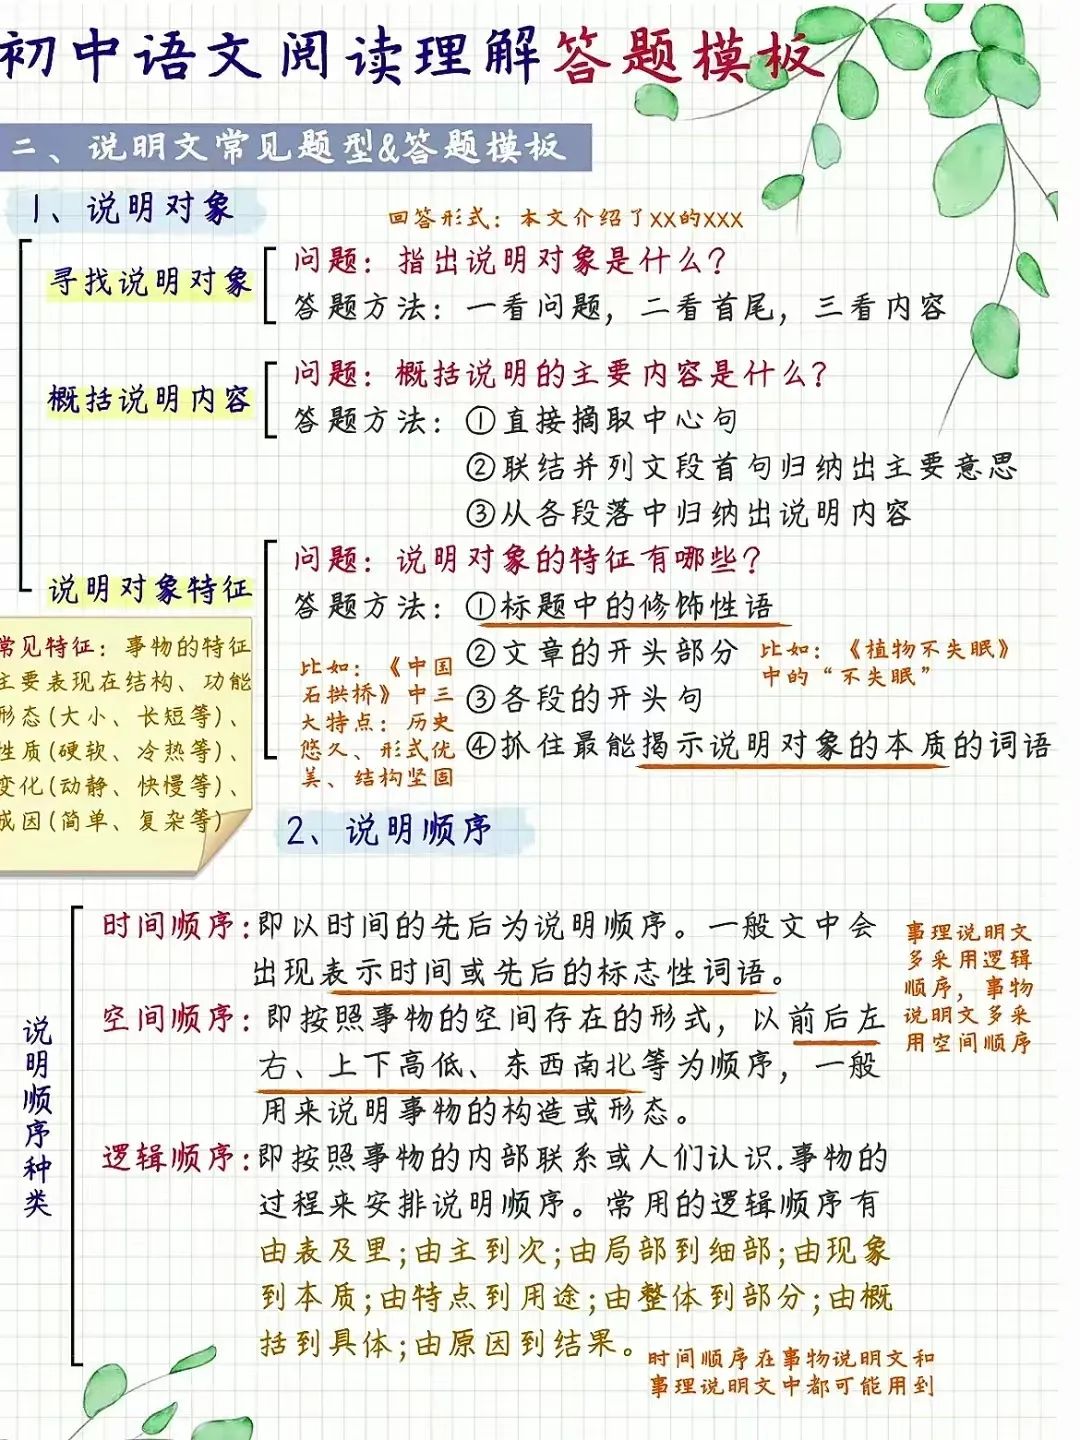 初中语文阅读理解答题模板
二、说明文常见题型&答题模板
1、说明对象
回答形式：本文介绍了XX的XXX
寻找说明对象
问题：指出说明对象是什么？
答题方法：一看问题，二看首尾，三看内容
概括说明内容
问题：概括说明的主要内容是什么？
答题方法：①直接摘取中心句
②联结并列文段首句归纳出主要意思
③从各段落中归纳出说明内容
说明对象特征
问题：说明对象的特征有哪些？
答题方法：①标题中的修饰性语
②文章的开头部分
比如：《植物不失眠》
中的“不失眠”
③各段的开头句
④抓住最能揭示说明对象的本质的词语
比如：《中国
石拱桥》中三
大特点：历史
悠久、形式优
美、结构坚固
常见特征：事物的特征
主要表现在结构、功能
形态(大小、长短等)、
性质(硬软、冷热等)、
变化(动静、快慢等)、
成因(简单、复杂等)
2、说明顺序
说明顺序种类
时间顺序:即以时间的先后为说明顺序。一般文中会
出现表示时间或先后的标志性词语。
空间顺序:即按照事物的空间存在的形式，以前后左
右、上下高低、东西南北等为顺序，一般
用来说明事物的构造或形态。
逻辑顺序:即按照事物的内部联系或人们认识.事物的
过程来安排说明顺序。常用的逻辑顺序有
由表及里;由主到次;由局部到细部;由现象
到本质;由特点到用途;由整体到部分;由概
括到具体;由原因到结果。
事理说明文
多采用逻辑
顺序，事物
说明文多采
用空间顺序
时间顺序在事物说明文和
事理说明文中都可能用到